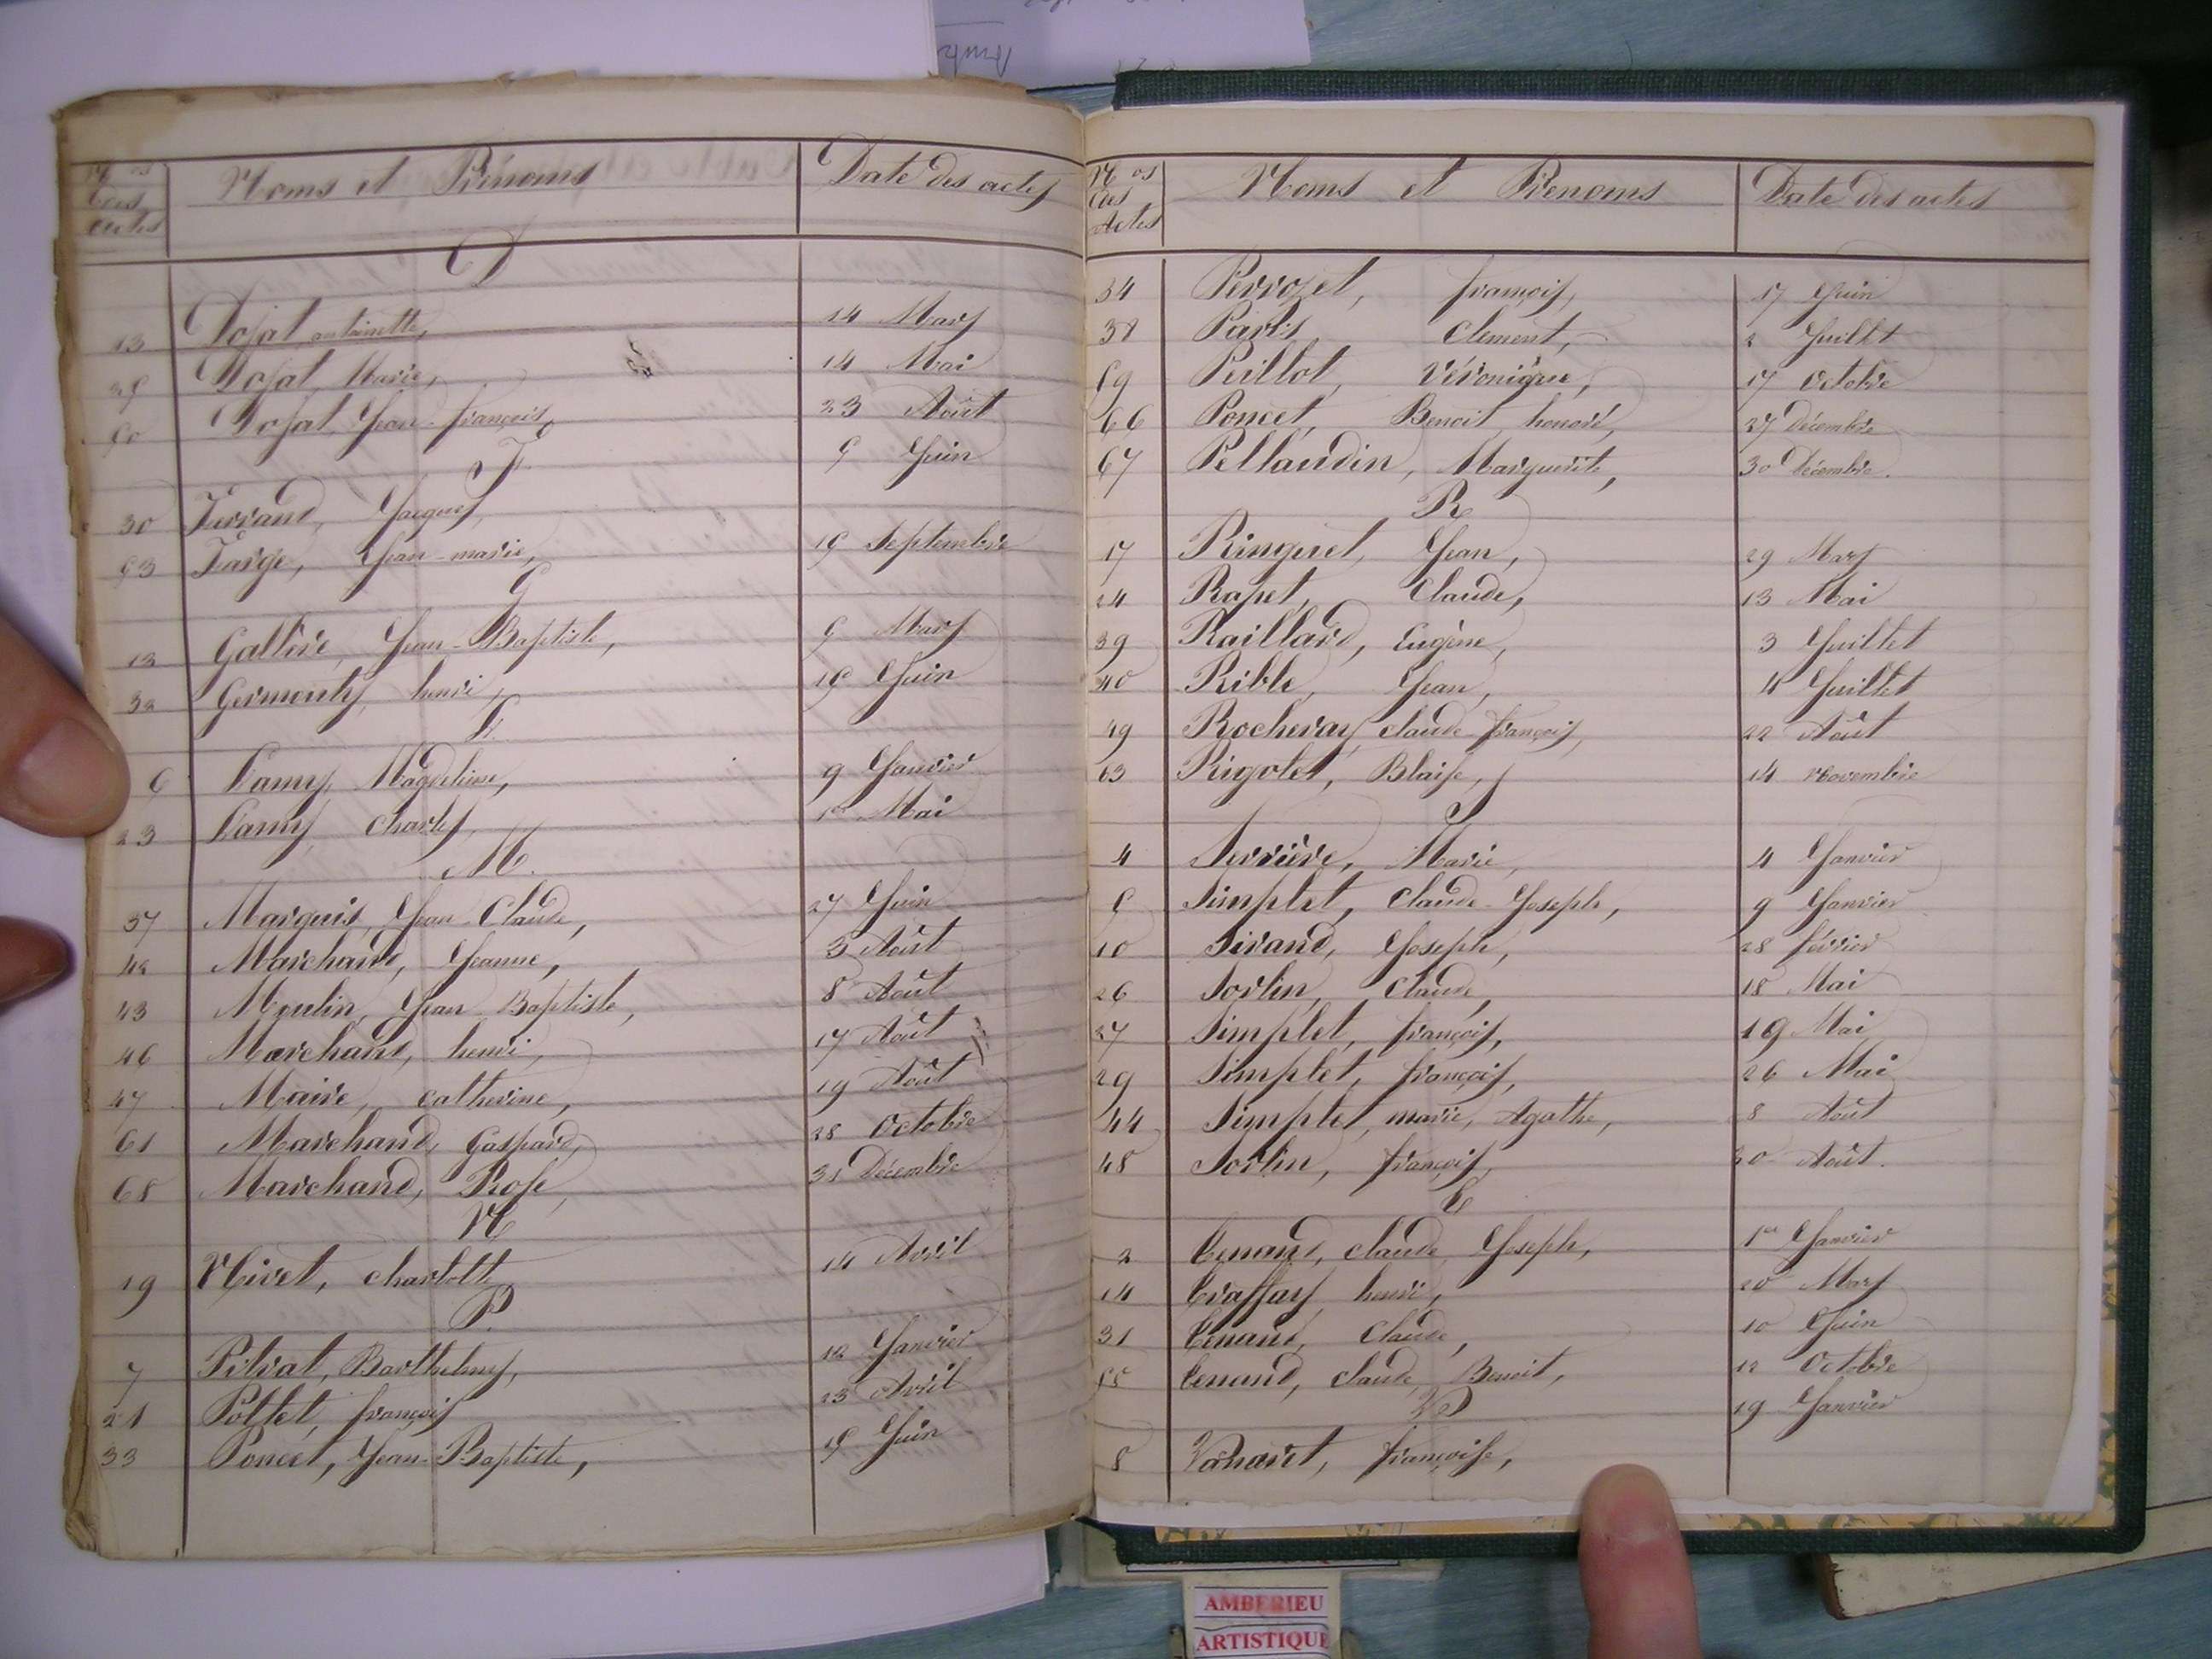 Nos des actes Noms et Prénoms Date des actes
D
13 Dojat antoinette, 14 Mars
25 Dojat Marie, 14 Mai
50 Dojat Jean-françois, 23 Août
F
30 Ferrand, Jacques, 5 Juin
53 Farge, Jean-marie, 15 Septembre
G
12 Jean-Baptiste, 5 Mars
32 henri, 15 Juin
L
6 Lamy, Magdeleine, 9 Janvier
23 Lamy Charles, 1er Mai
M.
37 Marquis, Jean-Claude, 27 Juin
42 Marchand, Jeanne, 3 Août
43 Moulin, Jean-Baptiste, 8 Août
46 Marchand, henri, 17 Août
47 Maire, catherine, 19 Août
61 Marchand, Gaspard, 28 Octobre
68 Marchand, Rose, 31 Décembre
N
19 Nivet, charlotte, 14 Avril
P.
7 Pitrat, Barthelemy, 12 Janvier
21 Pollet, françois 23 Avril
33 Poncet, Jean-Baptiste, 15 Juin
Nos des Actes Noms et Prénoms Date des actes
34 Perrozet, françois, 17 Juin
38 Clement, 2 Juillet
59 Peillot, Véronique, 17 Octobre
66 Poncet, Benoit, honoré, 27 Décembre
67 Pellaudin, Marguerite, 30 Décembre.
R
17 Ringuet, Jean, 29 Mars
24 Rapet, Claude, 13 Mai
39 Raillard, Eugène, 3 Juillet
40 Rible, Jean, 4 Juillet
49 Rochevay, claude-françois, 22 Août
63 Rigolet, Blaise, 14 Novembre
S
4 Serrière, Marie, 4 Janvier
5 Simplet, Claude-Joseph, 9 Janvier
10 Sirand, Joseph, 28 février
26 Sorlin, Claude, 18 Mai
27 Simplet, françois, 19 Mai
29 Simplet, françois, 26 Mai
44 Simplet, marie, Agathe, 8 Août
48 Sorlin, françois, 20 Août.
T
2 Tenand, claude Joseph, 1er Janvier
14 Traffay henri, 20 Mars
31 Tenand, Claude, 10 Juin
58 Tenand, claude Benoit, 12 Octobre
V
8 françoise, 19 Janvier
AMBERIEU
ARTISTIQUE